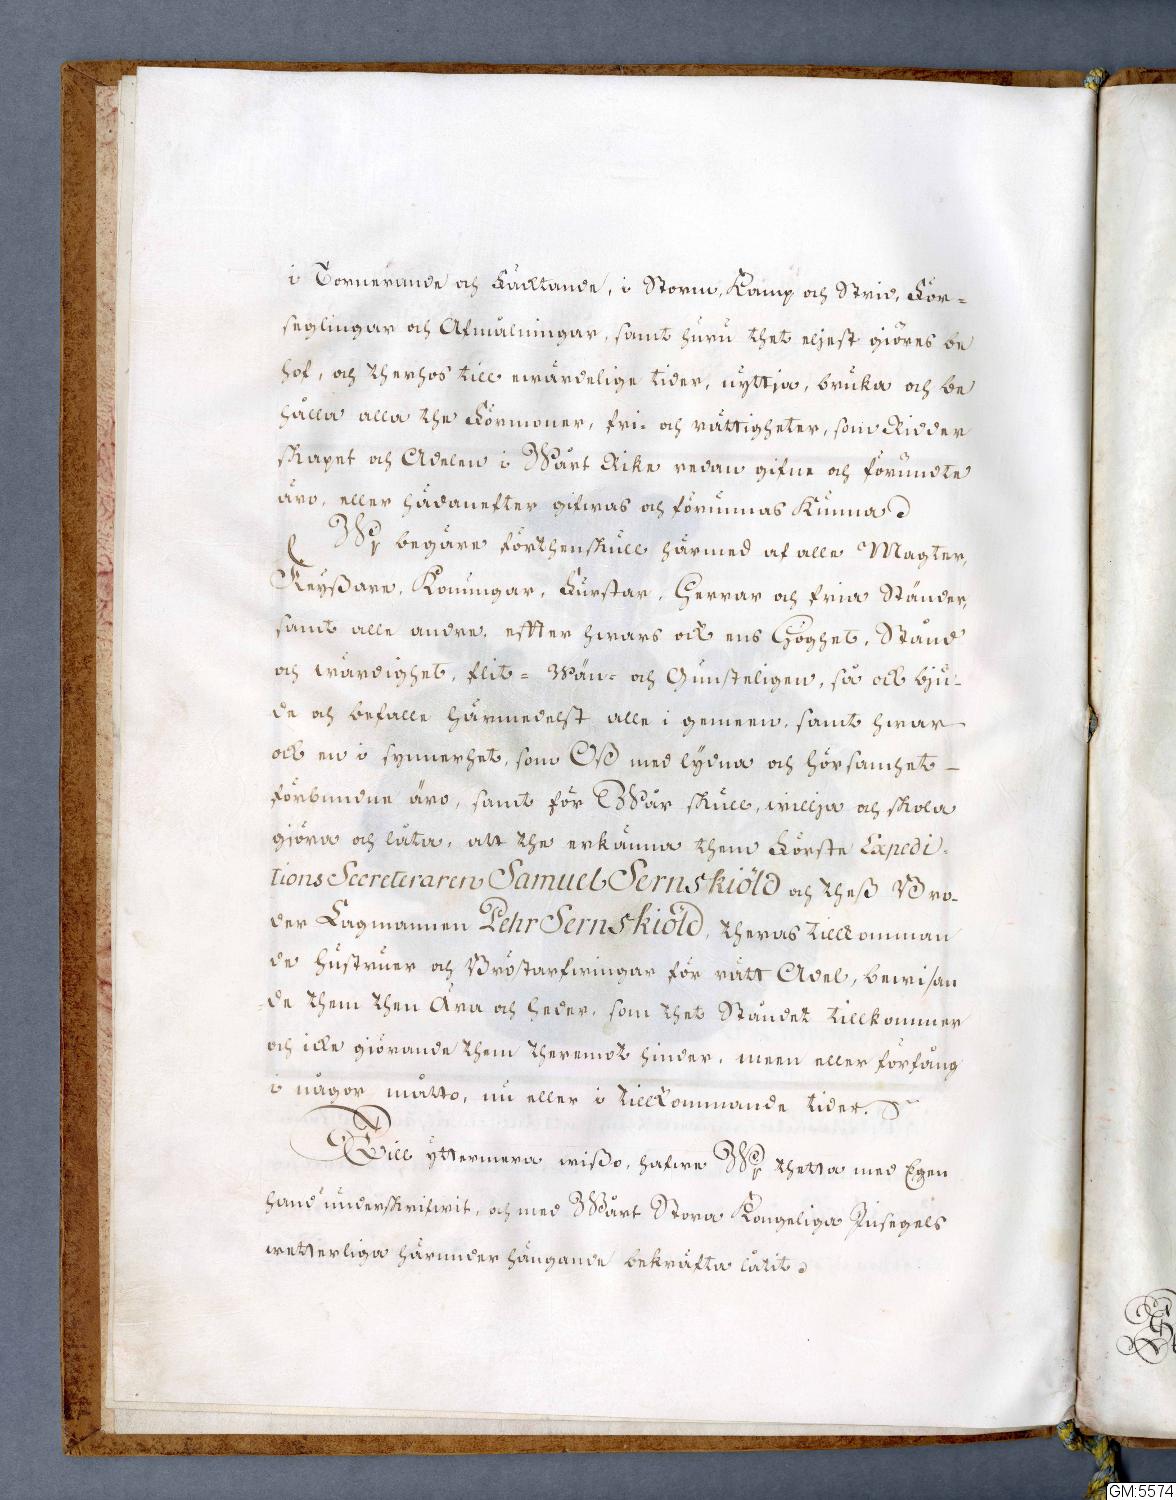 i Tornerande och Fäcktande, i Storm, Kamp och Strid, För=
seglingar och Afmålningar, samt huru thet eljest giöres be
hof, och therhos till ewärdelige tider, nyttja, bruka och be
hålla alla the Förmoner, fri- och rättigheter, som Ridder
skapet och Adelen i Wårt Rike redan gifne och förundte
äro, eller hädanefter gifwas och förunnas Kunna.
Wij begäre förthenskull härmed af alle Magter,
Keyßare, Konungar, Furstar, Herrar och fria Ständer,
samt alle andre, effter hwars ock ens Höghet, Stånd
och wärdighet, flit= Wän= och Gunsteligen, så ock bju-
de och befalle härmedelst alle i gemeen, samt hwar
ock en i synnerhet, som Oß med lydna och hörsamhet
förbundne äro, samt för Wår skull, willja och skola
gjöra och låta, att the erkänna them Förste Expedi-
tions Secreteraren Samuel Sernskiöld och theß Bro-
der Lagmannen Pehr Sernskiöld, theras tillkomman
de hustruer och Bröstarfwingar för rätt Adel, bewisan
de them then Ära och heder, som thet Ståndet tillkommer
och icke giörande them theremot hinder, meen eller förfång
i någor måtto, nu eller i tillkommande tider.
Till yttermera wißo, hafwe Wij thetta med Egen
hand underskrifwit, och med Wårt Stora Kongeliga Insegels
wetterliga härunder hängande bekräfta låtit.
GM:5574